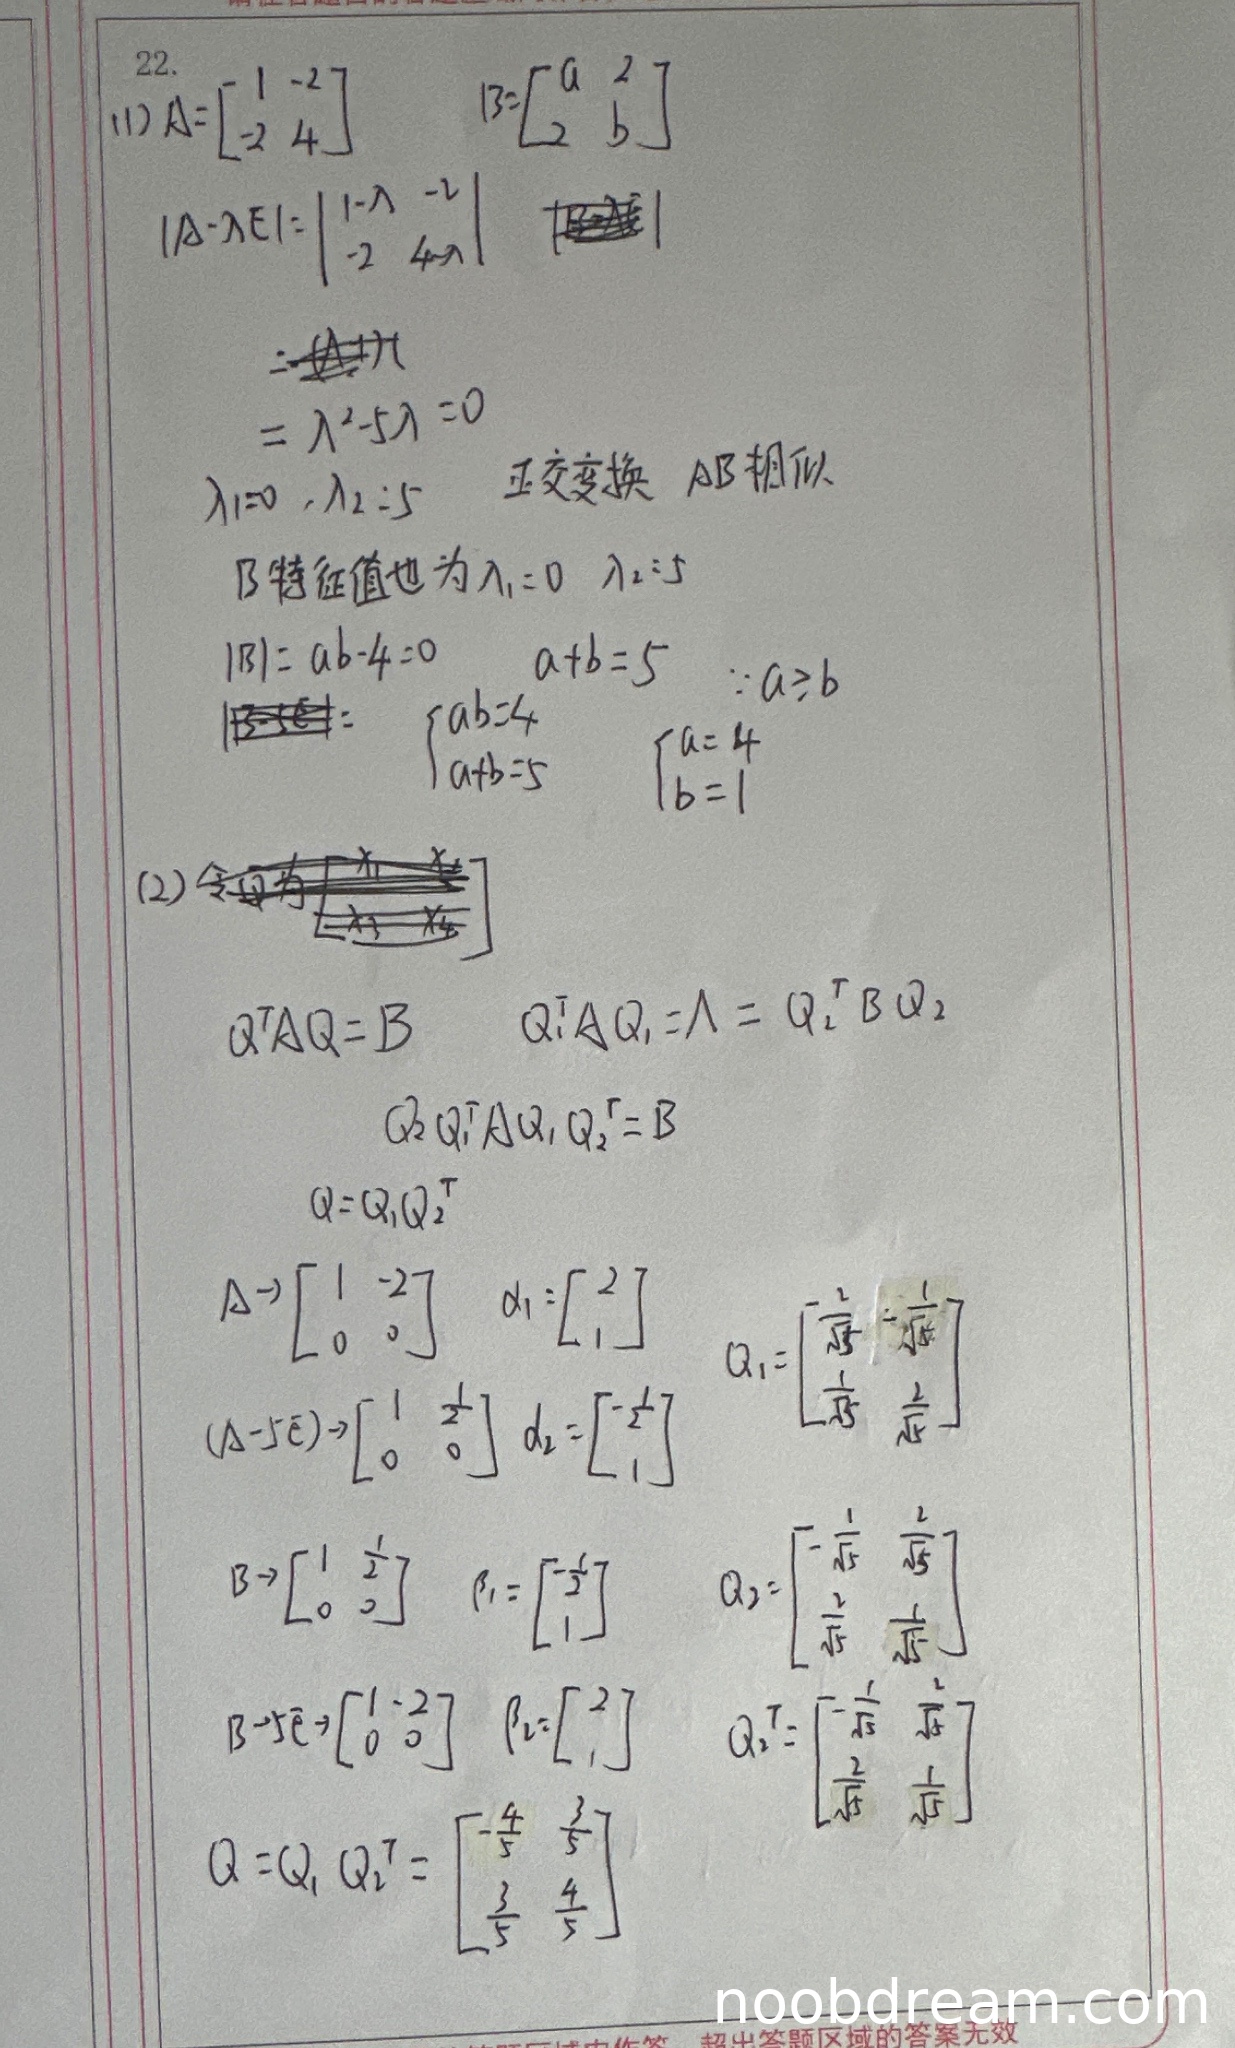 22.
(1) A=[1 -2; -2 4] B=[a 2; 2 b]
|A-λE|=|1-λ -2; -2 4-λ|
= λ²-5λ=0
λ1=0, λ2=5 正交变换 AB相似
B特征值也为λ1=0 λ2=5
|B|=ab-4=0 a+b=5 ∵a≥b
{ab=4; a+b=5 {a=4; b=1
(2)
QᵀAQ=B Q1ᵀAQ1=Λ=Q2ᵀBQ2
Q2Q1ᵀAQ1Q2ᵀ=B
Q=Q1Q2ᵀ
A→[1 -2; 0 0] α1=[2; 1] Q1=[2/√5 -1/√5; 1/√5 2/√5]
(A-5E)→[1 1/2; 0 0] α2=[-1/2; 1]
B→[1 1/2; 0 0] β1=[-1/2; 1] Q2=[-1/√5 2/√5; 2/√5 1/√5]
B-5E→[1 -2; 0 0] β2=[2; 1] Q2ᵀ=[-1/√5 2/√5; 2/√5 1/√5]
Q=Q1Q2ᵀ=[-4/5 3/5; 3/5 4/5]
noobdream.com
超出答题区域的答案无效